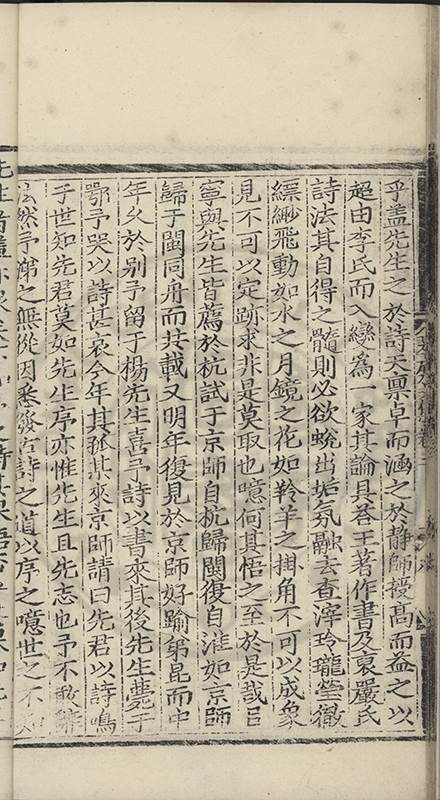 乎蓋先生之於詩天稟卓而涵之於靜師授髙而益之以
超由李氏而入變爲一家其論具荅王著作書及裒嚴氏
詩法其自得之髓則必欲蛻出垢氛融去查滓玲瓏瑩徹
縹緲飛動如水之月鏡之花如羚羊之掛角不可以成象
見不可以定跡求非是莫取也噫何其悟之至於是哉吕
寧與先生皆薦於杭試于京師自杭歸閩復自淮如京師
歸于閩同舟而共載又明年復見於京師好踰弟昆而中
年乆於别予留于楊先生喜予詩以書來其後先生薨于
鄂予哭以詩甚哀今年其孤某來京師請曰先君以詩鳴
于世知先君莫如先生序亦惟先生且先志也予不敢辭
法然予弟之無從因悉發古詩之道以序之噫世之不知